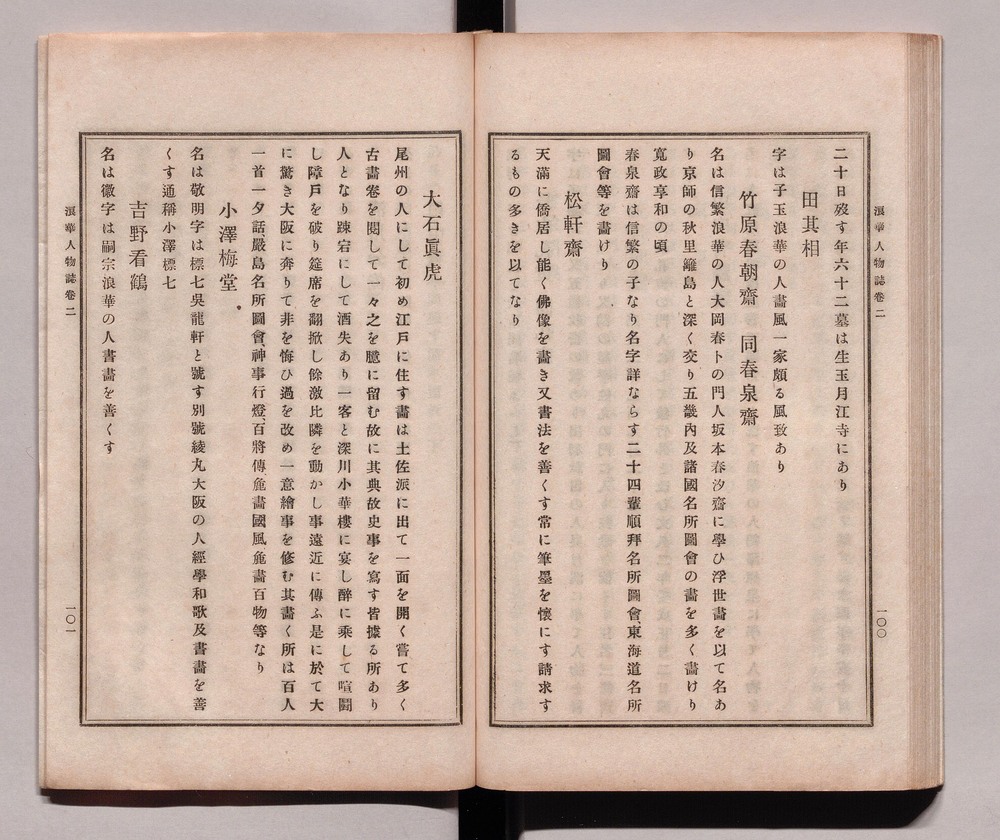 浪華人物誌卷二
一〇〇
二十日歿す年六十二墓は生玉月江寺にあり
田其相
字は子玉浪華の人畵風一家頗る風致あり
竹原春朝齋 同春泉齋
名は信繁浪華の人大岡春卜の門人坂本春汐齋に學ひ浮世畵を以て名あ
り京師の秋里籬島と深く交り五畿內及諸國名所圖會の畵を多く畵けり
寬政享和の頃
春泉齋は信繁の子なり名字詳ならす二十四輩順拜名所圖會東海道名所
圖會等を畵けり
松軒齋
天滿に僑居し能く佛像を畵き又書法を善くす常に筆墨を懷にす請求す
るもの多きを以てなり
大石眞虎
尾州の人にして初め江戶に住す畵は土佐派に出て一面を開く嘗て多く
古畵卷を閱して一々之を臆に留む故に其典故史事を寫す皆據る所あり
人となり踈宕にして酒失あり一客と深川小華樓に宴し醉に乘して喧鬪
し障戶を破り筵席を翻掀し餘激比隣を動かし事遠近に傳ふ是に於て大
に驚き大阪に奔りて非を悔ひ過を改め一意繪事を修む其畵く所は百人
一首一夕話嚴島名所圖會、神事行燈、百將傳麁畵國風麁畵百物等なり
小澤梅堂
名は敬明字は標七吳龍軒と號す別號綾丸大阪の人經學和歌及書畵を善
くす通稱小澤標七
吉野看鶴
名は徽字は嗣宗浪華の人書畵を善くす
浪華人物誌卷二
一〇一